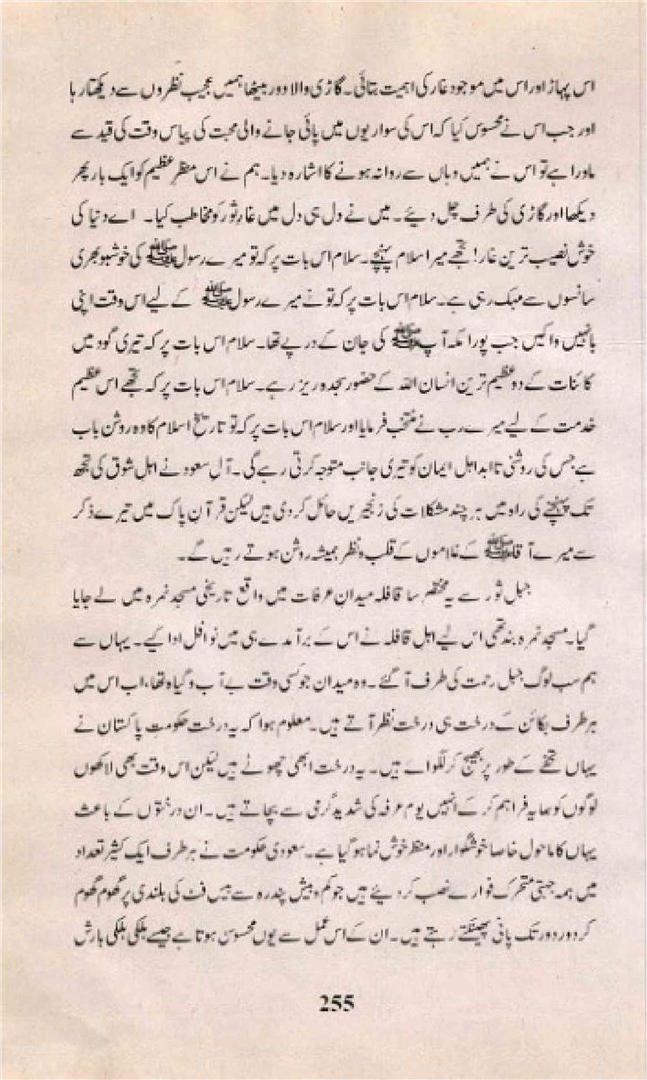 اس پہاڑ اور اس میں موجود غار کی اہمیت بتائی۔ گاڑی والا دور بیٹھا ہمیں عجیب نظروں سے دیکھتا رہا
اور جب اس نے محسوس کیا کہ اس کی سواریوں میں پائی جانے والی محبت کی پیاس وقت کی قید سے
ماورا ہے تو اس نے ہمیں وہاں سے روانہ ہونے کا اشارہ دیا۔ ہم نے اس منظرِ عظیم کو ایک بار پھر
دیکھا اور گاڑی کی طرف چل دیئے۔ میں نے دل ہی دل میں غارِ ثور کو مخاطب کیا۔ اے دنیا کی
خوش نصیب ترین غار! تجھے میرا سلام پہنچے۔ سلام اس بات پر کہ تو میرے رسول ﷺ کی خوشبو بھری
سانسوں سے مہک رہی ہے۔ سلام اس بات پر کہ تو نے میرے رسول ﷺ کے لیے اس وقت اپنی
بانہیں وا کیں جب پورا مکہ آپ ﷺ کی جان کے درپے تھا۔ سلام اس بات پر کہ تیری گود میں
کائنات کے دو عظیم ترین انسان اللہ کے حضور سجدہ ریز رہے۔ سلام اس بات پر کہ تجھے اس عظیم
خدمت کے لیے میرے رب نے منتخب فرمایا اور سلام اس بات پر کہ تو تاریخ اسلام کا وہ روشن باب
ہے جس کی روشنی تا ابد اہل ایمان کو تیری جانب متوجہ کرتی رہے گی۔ آل سعود نے اہل شوق کی تجھ
تک پہنچنے کی راہ میں ہر چند مشکلات کی زنجیریں حائل کر دی ہیں لیکن قرآن پاک میں تیرے ذکر
سے میرے آقا ﷺ کے غلاموں کے قلب و نظر ہمیشہ روشن ہوتے رہیں گے۔
جبل ثور سے یہ مختصر سا قافلہ میدانِ عرفات میں واقع تاریخی مسجد نمرہ میں لے جایا
گیا۔ مسجد نمرہ بند تھی اس لیے اہل قافلہ نے اس کے برآمدے ہی میں نوافل ادا کیے۔ یہاں سے
ہم سب لوگ جبل رحمت کی طرف آ گئے۔ وہ میدان جو کسی وقت بے آب و گیاہ تھا، اب اس میں
ہر طرف بکائن کے درخت ہی درخت نظر آتے ہیں۔ معلوم ہوا کہ یہ درخت حکومت پاکستان نے
یہاں تحفے کے طور پر بھیج کر لگوائے ہیں۔ یہ درخت ابھی چھوٹے ہیں لیکن اس وقت بھی لاکھوں
لوگوں کو سایہ فراہم کر کے انہیں یوم عرفہ کی شدید گرمی سے بچاتے ہیں۔ ان درختوں کے باعث
یہاں کا ماحول خاصا خوشگوار اور منظر خوش نما ہو گیا ہے۔ سعودی حکومت نے ہر طرف ایک کثیر تعداد
میں ہمہ جہتی متحرک فوارے نصب کر دیئے ہیں جو کم و بیش پندرہ سے بیس فٹ کی بلندی پر گھوم گھوم
کر دور دور تک پانی پھینکتے رہتے ہیں۔ ان کے اس عمل سے یوں محسوس ہوتا ہے جیسے ہلکی ہلکی بارش
255